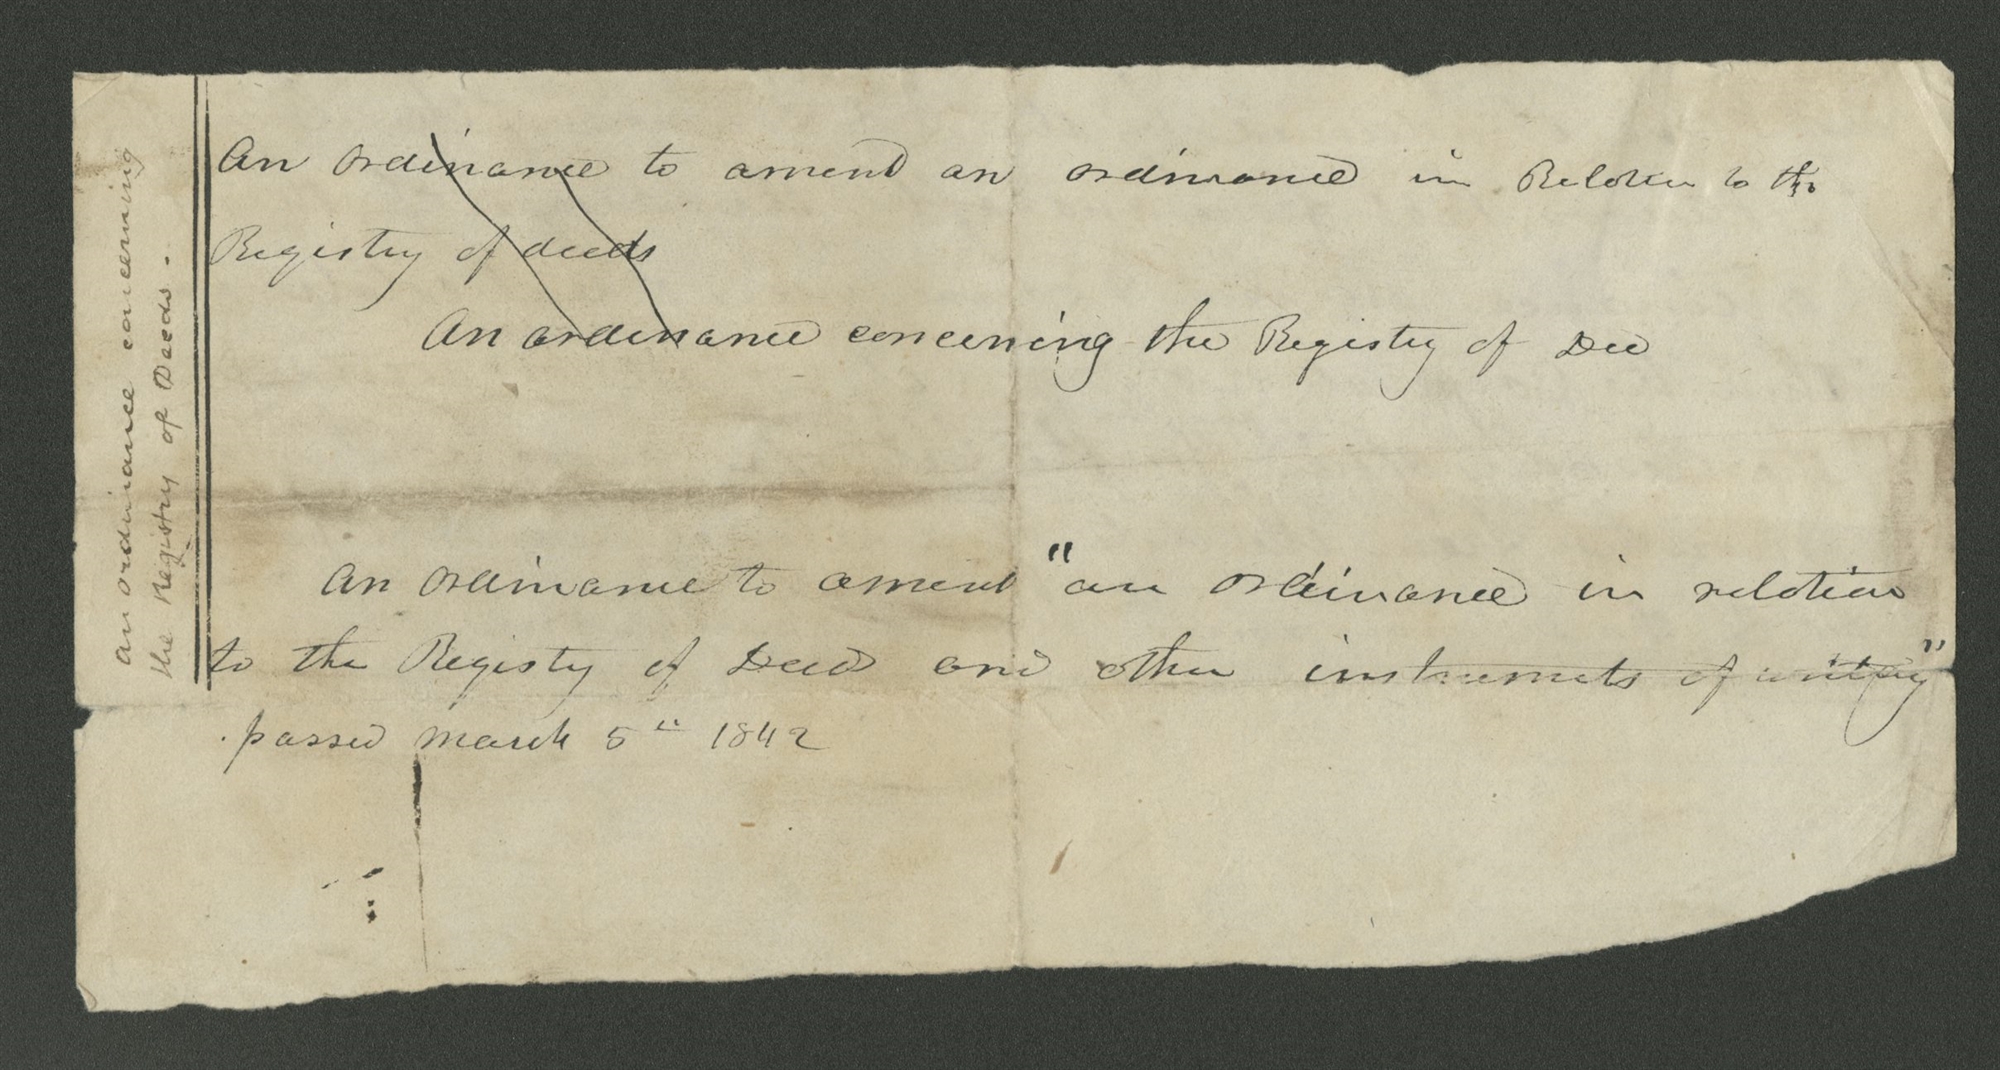 An ordinance to amend an ordinance in Relation to the
Registry of deeds
An ordinance concerning the Registry of Dee
An ordinance to amend "an ordinance in relation
to the Registy of Deed and other instruments of writing"
passed march 5th 1842
an ordinance concerning
the Registry of Deeds.